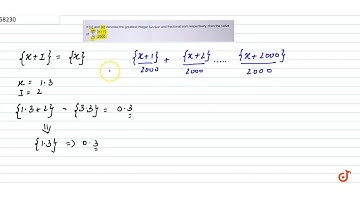 58230
If [x] and {x} denotes the greatest integer function and fractional part respectively, then the value
{x + I} = {x}
{x+1}/2000 + {x+2}/2000 ..... {x+2000}/2000
x = 1.3
I = 2
{1.3+2} = {3.3} = 0.3
⇓
{1.3} ⇒ 0.3